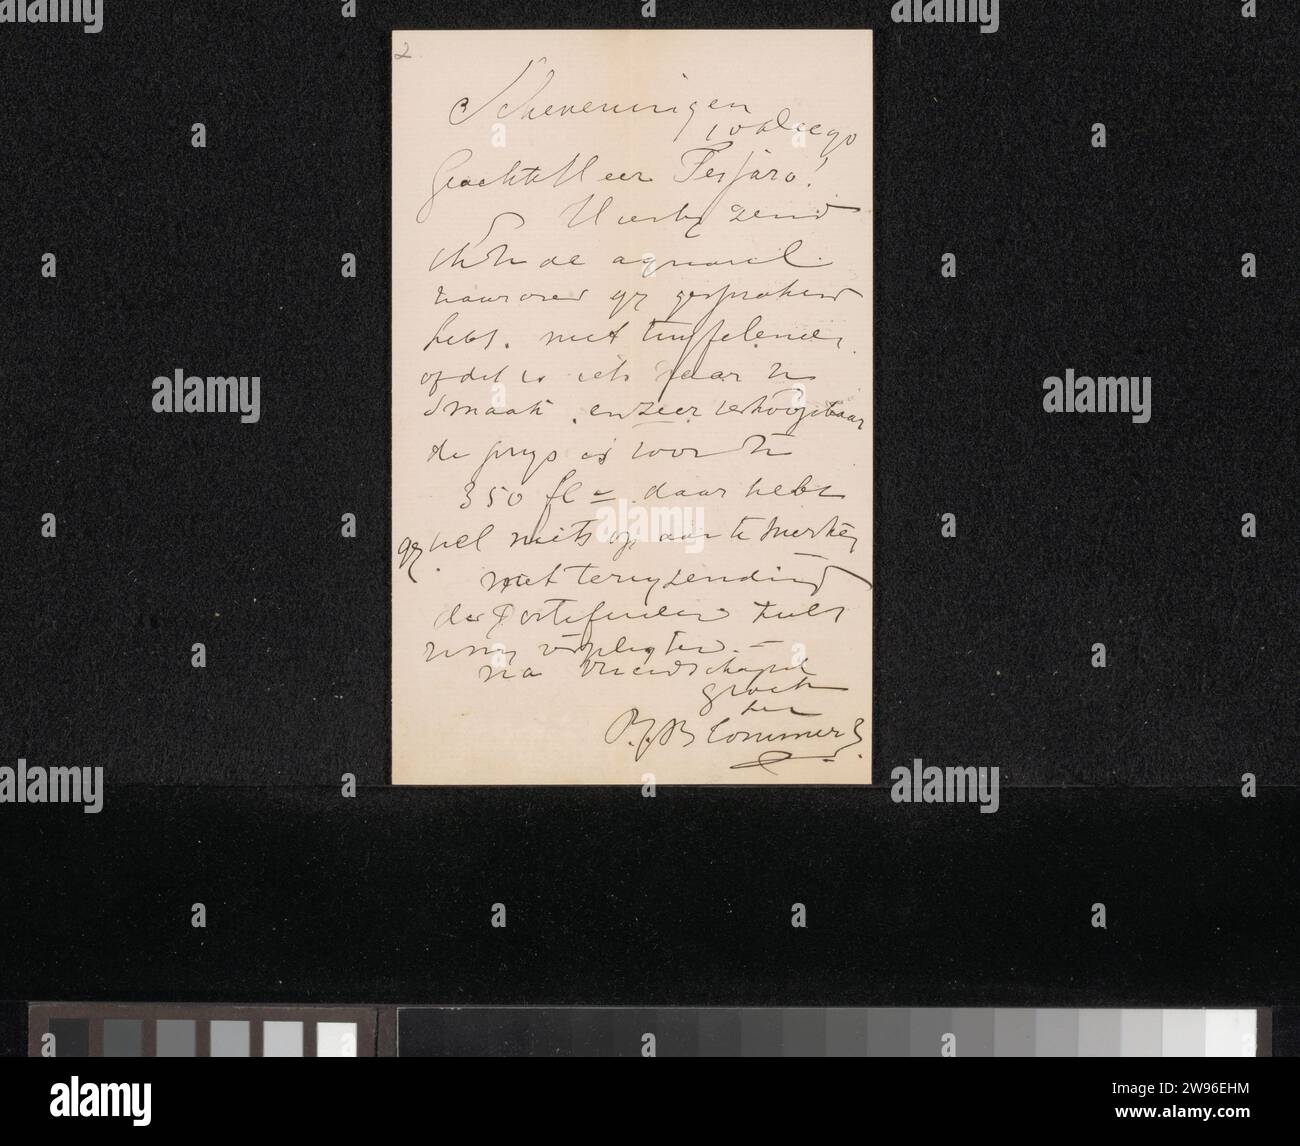 2
Scheveningen
10 Dec 90
Geachte Heer Tersjaro!
Hierbij zend
ik U de aquarel.
waarover gij gesproken
hebt. niet twijfelende
of dit is iets naar Uw
smaak. en zeer verkoopbaar
de prijs is voor U
350 fl = daar hebt
gij wel niets op aan te merken
met terugzending
der Portefeuille zult
mij verpligten. —
na vriendschappel
groete
Uw
B.J. Blommers.
alamy
Image ID: 2W96EHM
www.alamy.com